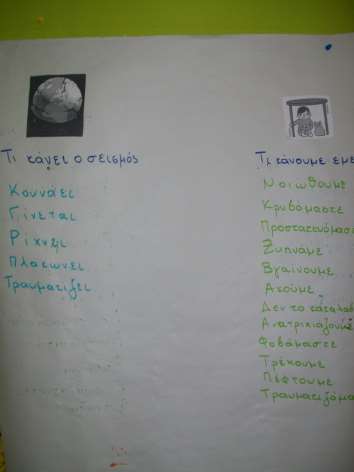 Τι κάνει ο σεισμός
Κουνάει
Γίνεται
Ρίχνει
Πλακώνει
Τραυματίζει
Τι κάνουμε εμε
Νοιώθουμε
Κρυβόμαστε
Προστατευόμασ
Ξυπνάμε
Βγαίνουμε
Ακούμε
Δεν το καταλαβ
Ανατριχιάζουμε
Φοβόμαστε
Τρέχουμε
Πέφτουμε
Τραυματιζόμα